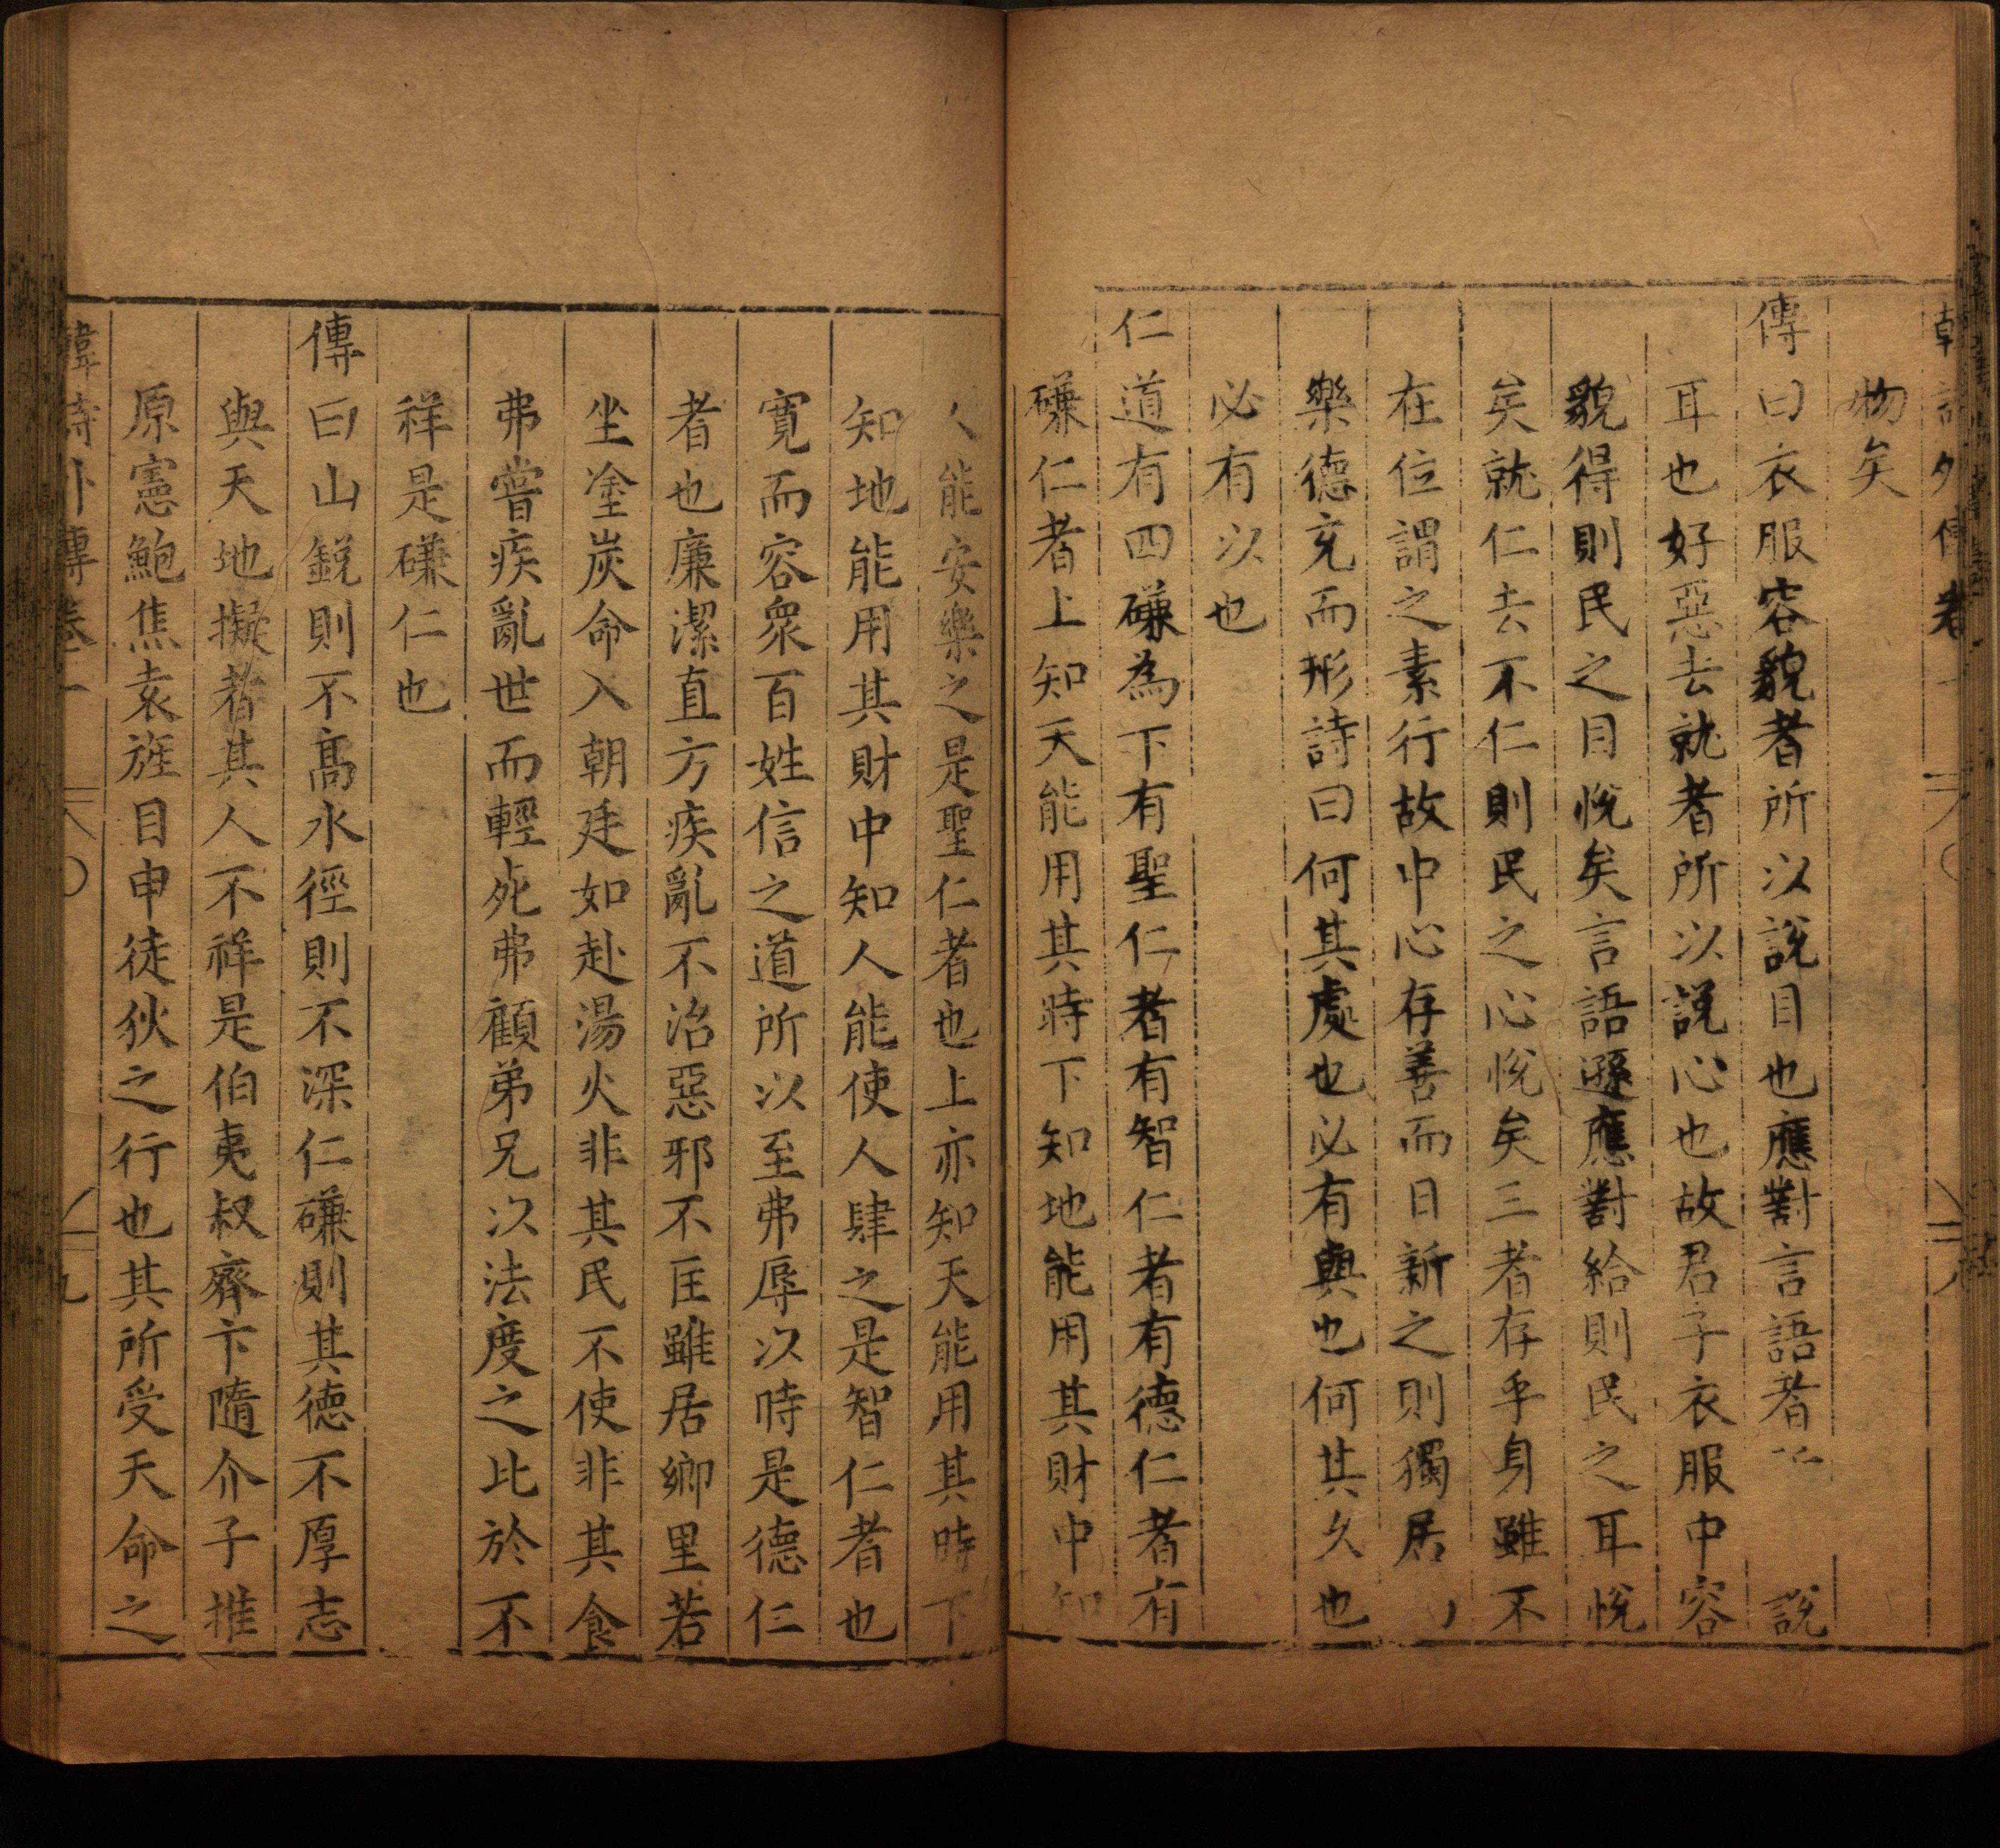 物矣
傳曰衣服容貌者所以說目也應對言語者所說
耳也好惡去就者所以說心也故君子衣服中容
貌得則民之目悅矣言語遜應對給則民之耳悅
矣就仁去不仁則民之心悅矣三者存乎身雖不
在位謂之素行故中心存善而日新之則獨居
樂德充而形詩曰何其處也必有與也何其久也
必有以也
仁道有四磏為下有聖仁者有智仁者有德仁者有
磏仁者上知天能用其時下知地能用其財中知
人能安樂之是聖仁者也上亦知天能用其時下
知地能用其財中知人能使人肆之是智仁者也
寛而容衆百姓信之道所以至弗辱以時是德仁
者也廉潔直方疾亂不治惡邪不匡雖居鄉里若
坐塗炭命入朝廷如赴湯火非其民不使非其食
弗嘗疾亂世而輕死弗顧弟兄以法度之比於不
祥是磏仁也
傳曰山銳則不高水徑則不深仁磏則其德不厚志
與天地擬者其人不祥是伯夷叔齊卞隨介子推
原憲鮑焦袁旌目申徒狄之行也其所受天命之
韓詩外傳卷一
九